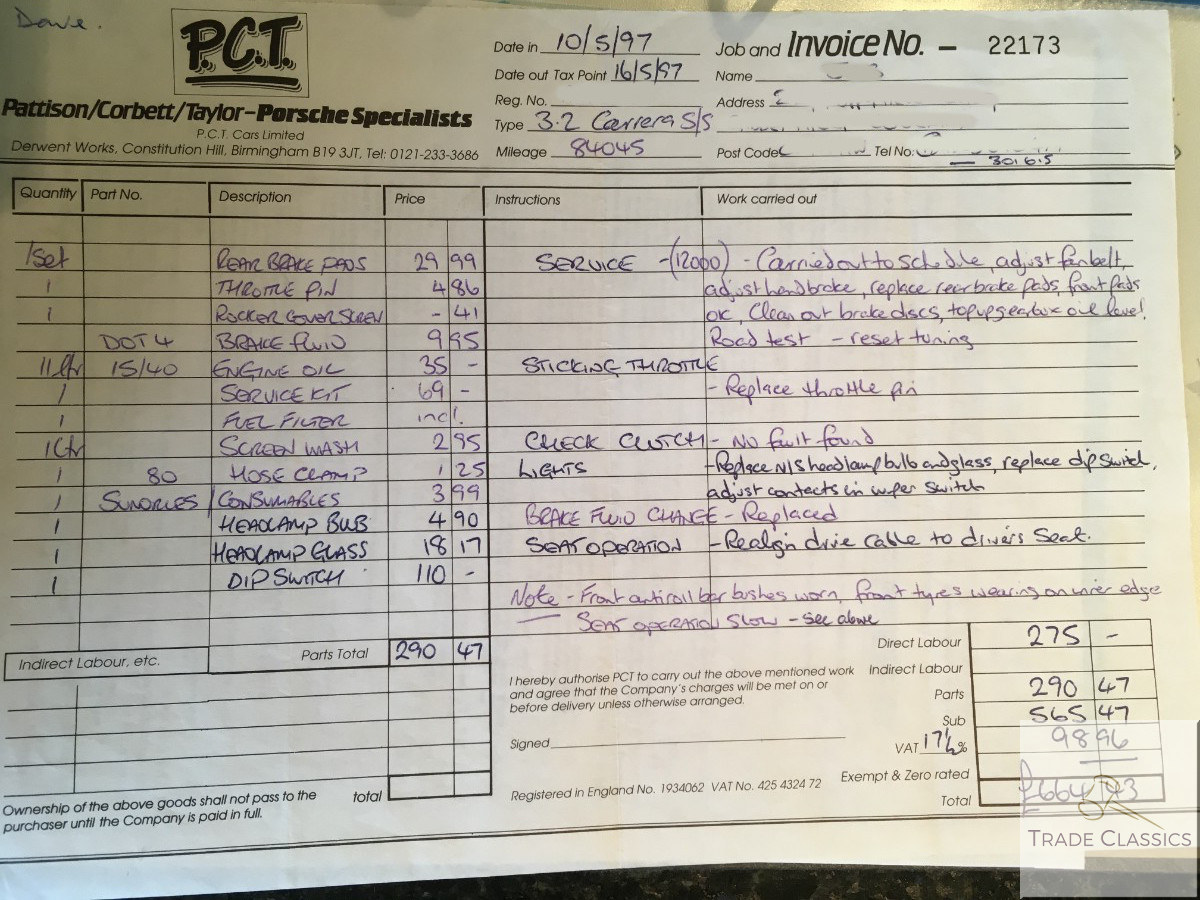 Dave.
P.C.T.
Pattison/Corbett/Taylor-Porsche Specialists
P.C.T. Cars Limited
Derwent Works, Constitution Hill, Birmingham B19 3JT, Tel: 0121-233-3686
Date in 10/5/97
Date out Tax Point 16/5/97
Reg. No.
Type 3.2 Carrera S/S
Mileage 84045
Job and Invoice No. - 22173
Name
Address
Post Code Tel No:
301615
Quantity Part No. Description Price Instructions Work carried out
1 Set REAR BRAKE PADS 29 99 SERVICE -(12000) - Carried out to schedule, adjust fan belt,
1 THROTTLE PIN 4 86 adjust handbrake, replace rear brake pads, front pads
1 ROCKER COVER SCREW - 41 ok, Clean out brake discs, top up gearbox oil level.
DOT 4 BRAKE FLUID 9 95 Road test - reset tuning
11 ltr 15/40 ENGINE OIL 35 - STICKING THROTTLE
1 SERVICE KIT 69 - - Replace throttle pin
1 FUEL FILTER incl.
1 Ltr SCREEN WASH 2 95 CHECK CLUTCH - No fault found
1 80 HOSE CLAMP 1 25 LIGHTS - Replace N/S headlamp bulb and glass, replace dip switch,
1 SUNDRIES / CONSUMABLES 3 99 adjust contacts in wiper switch
1 HEADLAMP BULB 4 90 BRAKE FLUID CHANGE - Replaced
1 HEADLAMP GLASS 18 17 SEAT OPERATION - Realign drive cable to drivers seat.
1 DIP SWITCH 110 -
Note - Front antiroll bar bushes worn, front tyres wearing on inner edge
SEAT OPERATION SLOW - see above
Indirect Labour, etc. Parts Total 290 47
I hereby authorise PCT to carry out the above mentioned work
and agree that the Company's charges will be met on or
before delivery unless otherwise arranged.
Signed
Registered in England No. 1934062 VAT No. 425 4324 72
Direct Labour 275 -
Indirect Labour
Parts 290 47
Sub 565 47
VAT 17½% 98 96
Exempt & Zero rated
Total £664
total
Ownership of the above goods shall not pass to the
purchaser until the Company is paid in full.
TRADE CLASSICS